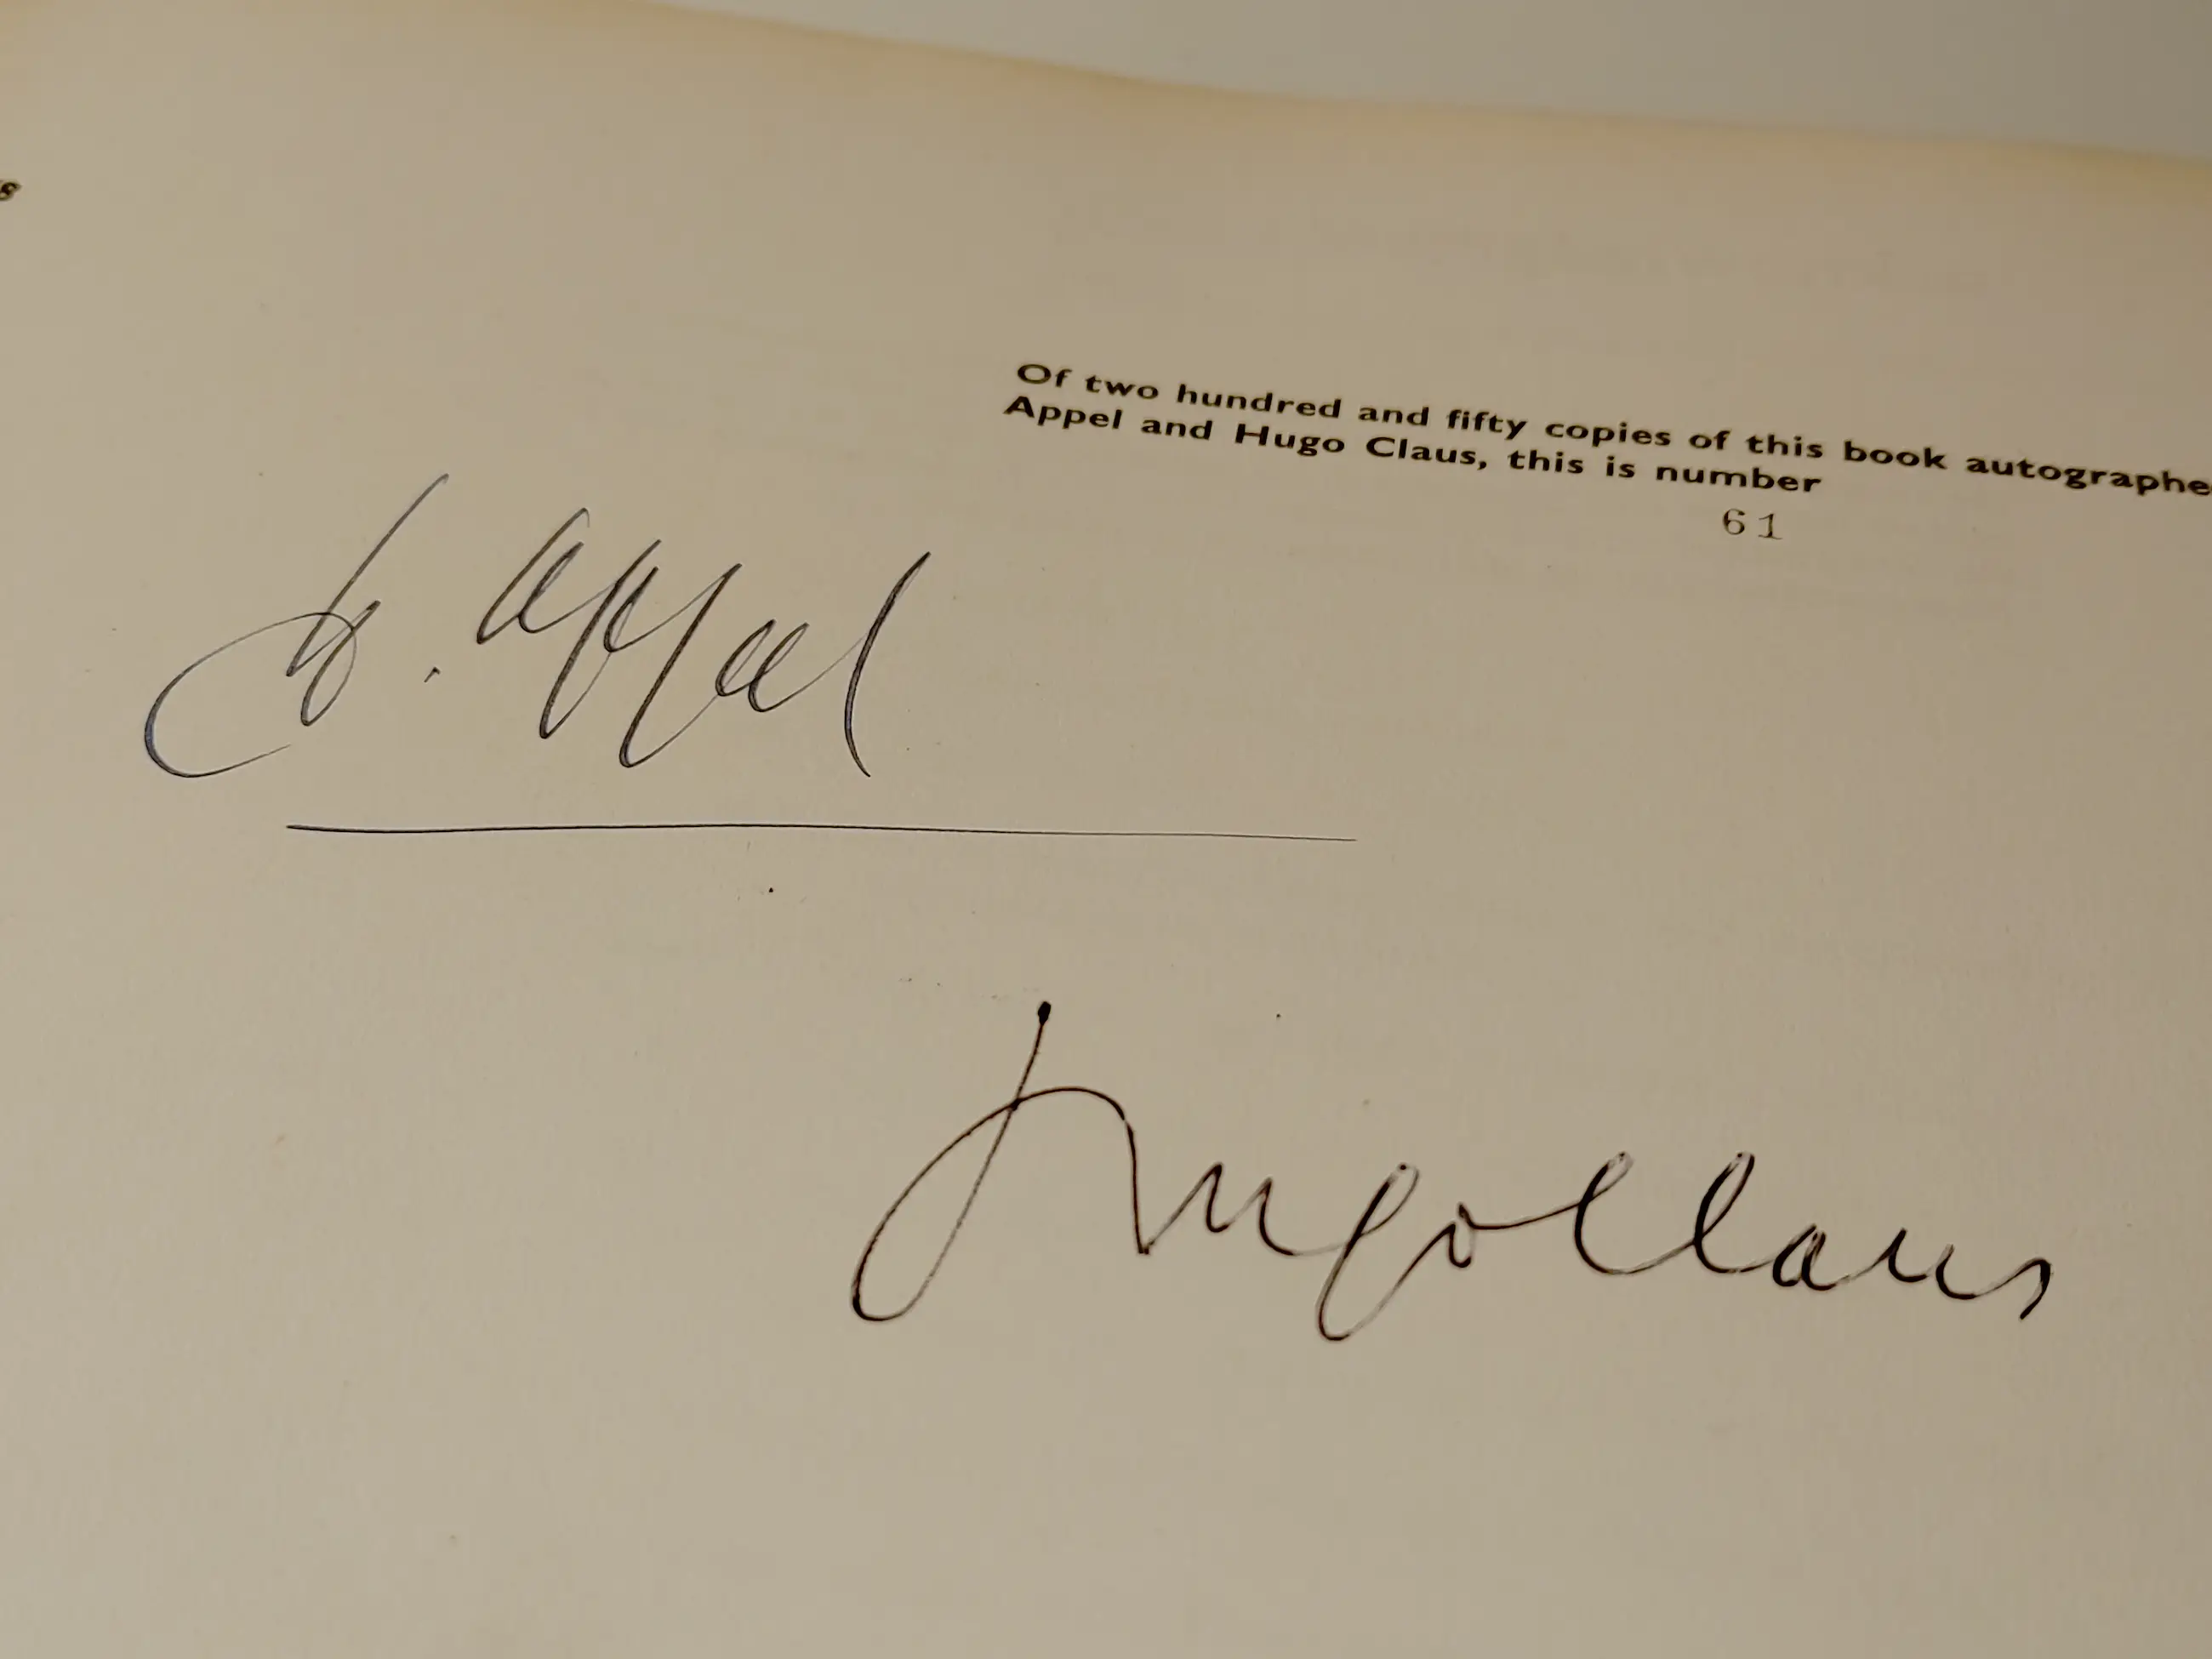 Of two hundred and fifty copies of this book autographe
Appel and Hugo Claus, this is number
61
K. Appel
Hugo Claus